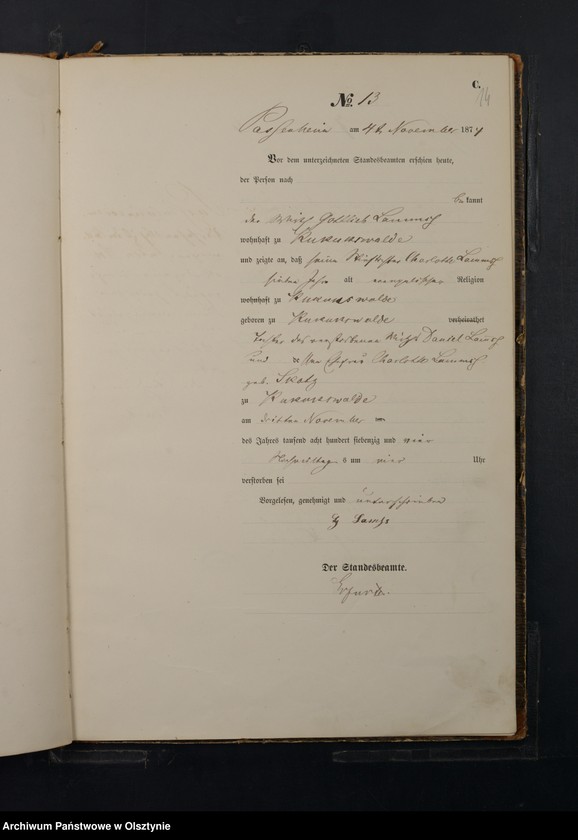 C.
14
No. 13
Passenheim am 4t November 1874
Vor dem unterzeichneten Standesbeamten erschien heute,
der Person nach
be kannt
der Wirth Gottlieb
wohnhaft zu Kukukswalde
und zeigte an, daß seine Charlotte
sieben Jahr alt evangelischer Religion
wohnhaft zu Kukukswalde
geboren zu Kukukswalde verheirathet
Tochter des verstorbenen Wirths Daniel
und dessen Ehefrau Charlotte
geb. Skotz
zu Kukukswalde
am dritten November
des Jahres tausend acht hundert siebenzig und vier
Nachmittags um vier Uhr
verstorben sei
Vorgelesen, genehmigt und unterschrieben
Der Standesbeamte.
Archiwum Państwowe w Olsztynie